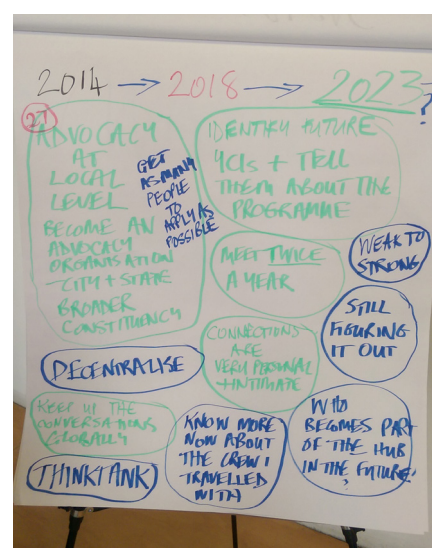 2014 → 2018 → 2023
?
27
ADVOCACY
AT
LOCAL
LEVEL
BECOME AN
ADVOCACY
ORGANISATION
CITY + STATE
BROADER
CONSTITUENCY
GET
AS MANY
PEOPLE
TO
APPLY AS
POSSIBLE
IDENTIFY FUTURE
YCIs + TELL
THEM ABOUT THE
PROGRAMME
MEET TWICE
A YEAR
WEAK TO
STRONG
STILL
FIGURING
IT OUT
CONNECTIONS
ARE
VERY PERSONAL
+ INTIMATE
DECENTRALISE
KEEP UP THE
CONVERSATIONS
GLOBALLY
THINKTANK
KNOW MORE
NOW ABOUT
THE CREW I
TRAVELLED
WITH
WHO
BECOMES PART
OF THE HUB
IN THE FUTURE?